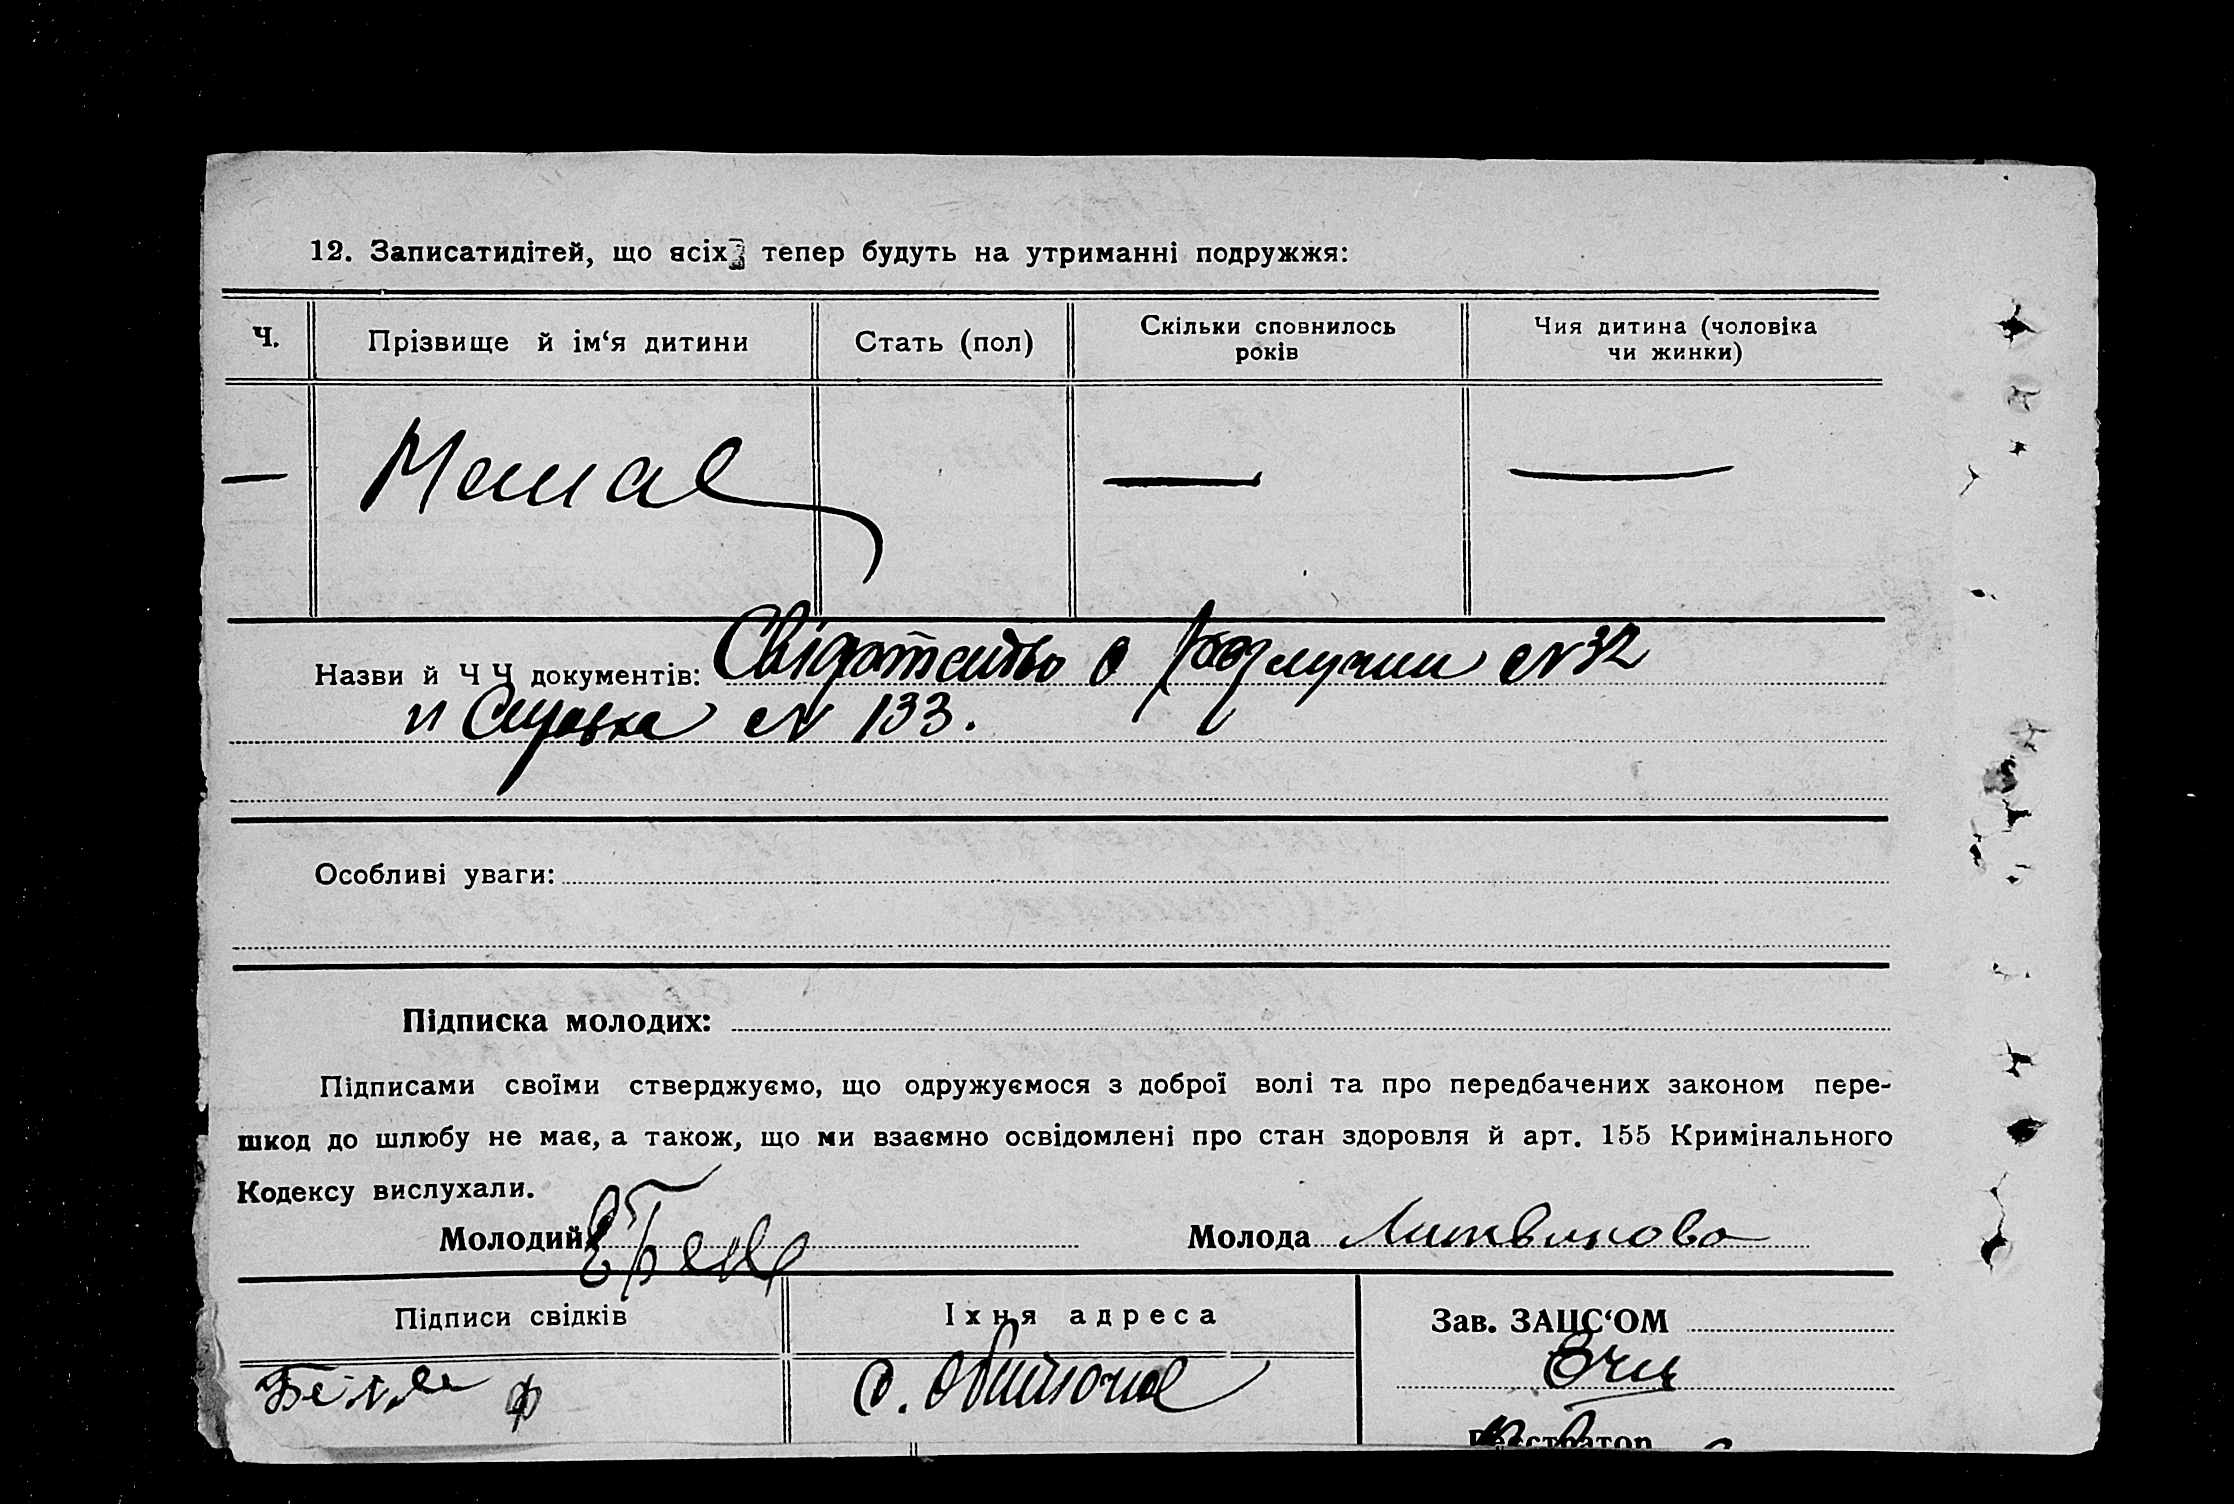 12. Записатидітей, що всіх тепер будуть на утриманні подружжя:
Ч. Прізвище й ім‘я дитини Стать (пол) Скільки сповнилось років Чия дитина (чоловіка чи жинки)
— — —
Назви й Ч Ч документів: Свідотство о № 32
и Справка № 133.
Особливі уваги:
Підписка молодих:
Підписами своїми стверджуємо, що одружуємося з доброї волі та про передбачених законом пере-
шкод до шлюбу не має, а також, що ми взаємно освідомлені про стан здоровля й арт. 155 Кримінального
Кодексу вислухали.
Молодий Молода Литвинова
Підписи свідків Їхня адреса Зав. ЗАЦС‘ОМ
с.
Реєстратор